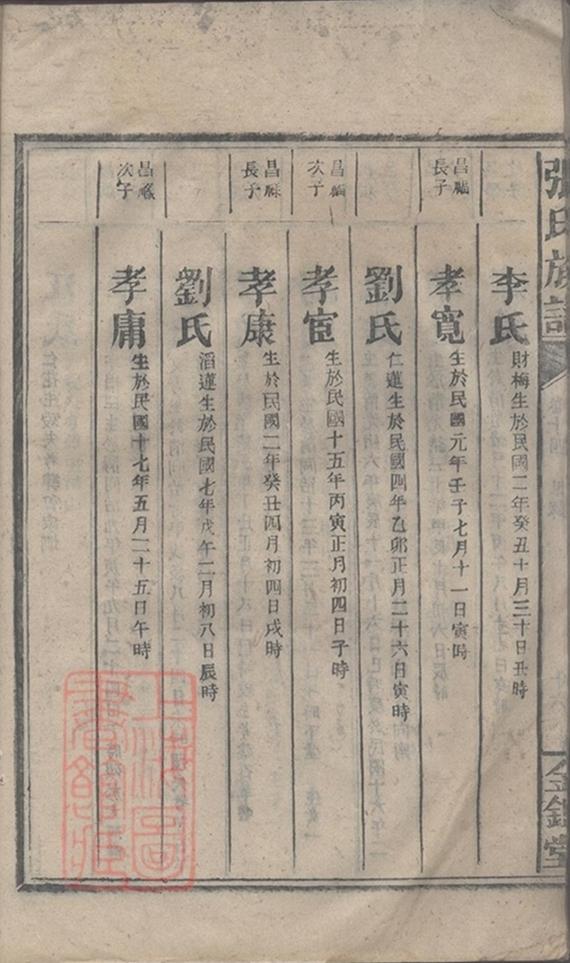 張氏族譜
金鑑堂
李氏 財梅生於民國二年癸丑十月三十日丑時
昌福長子
孝寬 生於民國元年壬子七月十一日寅時
劉氏 仁蓮生於民國四年乙卯正月二十六日寅時
昌福次子
孝宦 生於民國十五年丙寅正月初四日子時
昌 長子
孝康 生於民國二年癸丑四月初四日戌時
劉氏 滔蓮生於民國七年戊午二月初八日辰時
昌 次子
孝庸 生於民國十七年五月二十五日午時